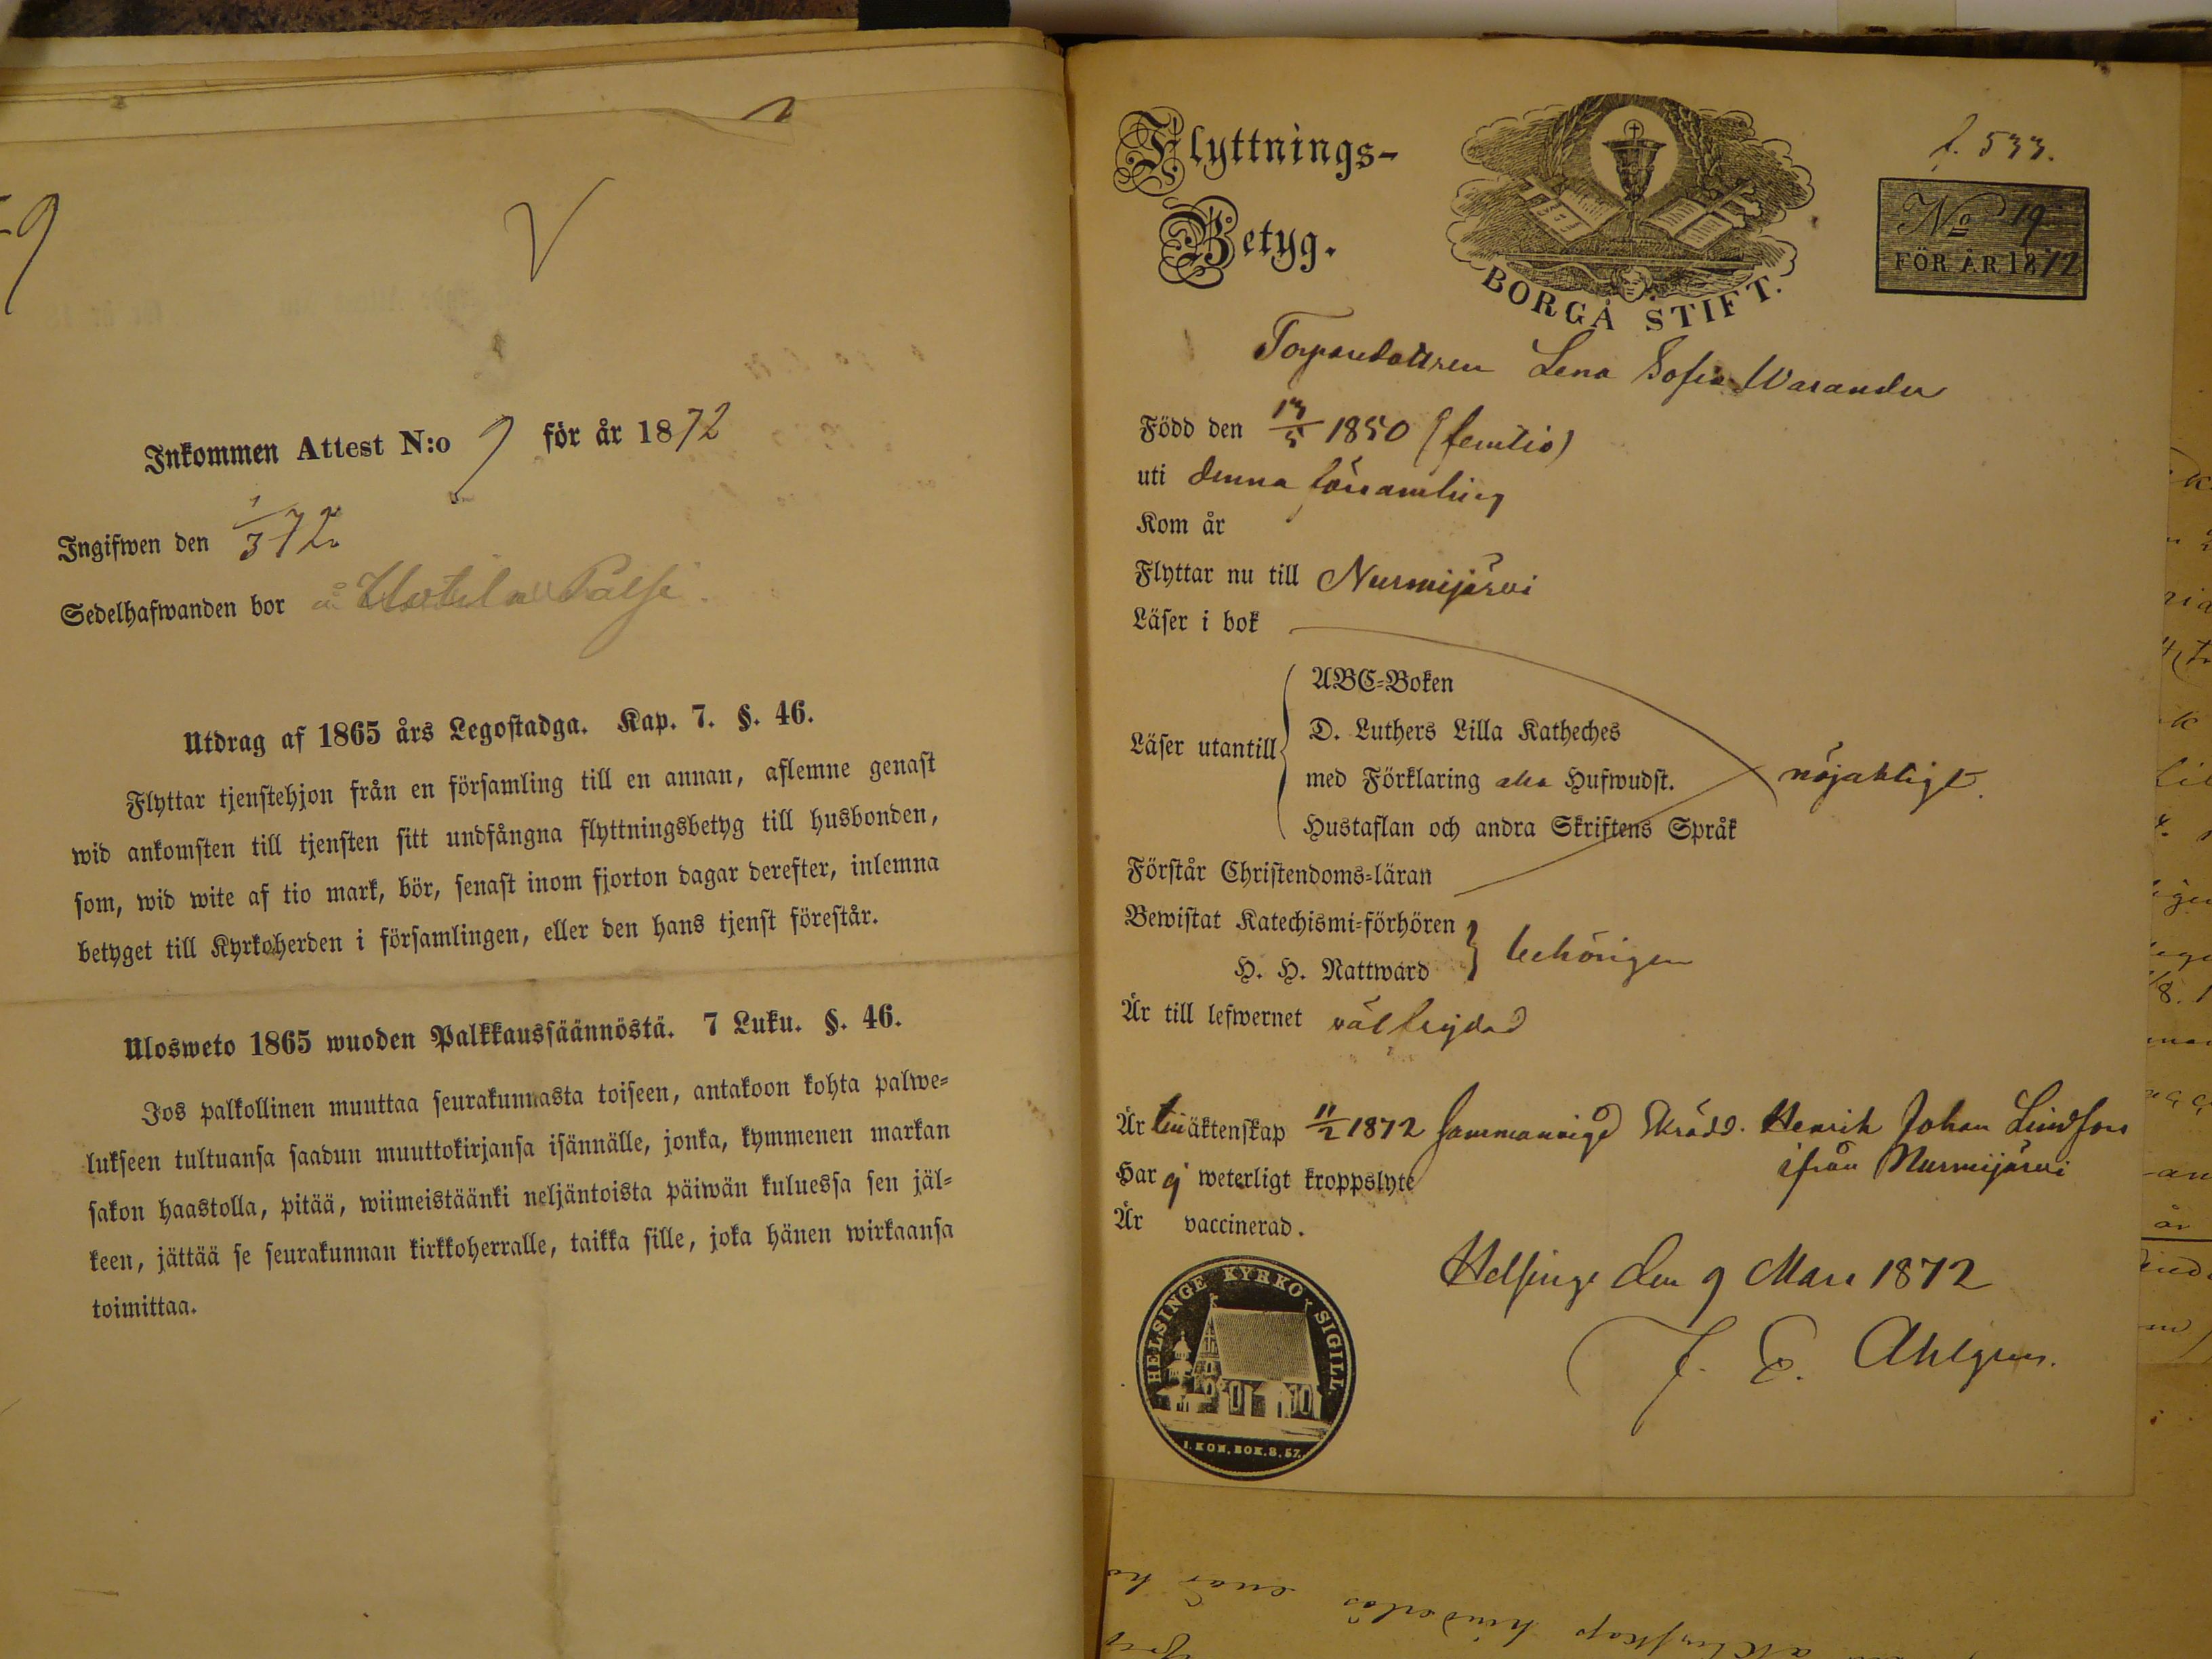 Inkommen Attest N:o 9 för år 1872
Ingifwen den 1/3 72.
Sedelhafwanden bor å
Utdrag af 1865 års Legostadga. Kap. 7. §. 46.
Flyttar tjenstehjon från en församling till en annan, aflemne genast
wid ankomsten till tjensten sitt undfångna flyttningsbetyg till husbonden,
som, wid wite af tio mark, bör, senast inom fjorton dagar derefter, inlemna
betyget till Kyrkoherden i församlingen, eller den hans tjenst förestår.
Ulosweto 1865 wuoden Palkkaussäännöstä. 7 Luku. §. 46.
Jos palkollinen muuttaa seurakunnasta toiseen, antakoon kohta palwe=
lukseen tultuansa saadun muuttokirjansa isännälle, jonka, kymmenen markan
sakon haastolla, pitää, wiimeistäänki neljäntoista päiwän kuluessa sen jäl=
keen, jättää se seurakunnan kirkkoherralle, taikka sille, joka hänen wirkaansa
toimittaa.
Flyttnings-
Betyg.
BORGÅ STIFT.
f. 533.
No 19
FÖR ÅR 1872
Torpardottren Lena Sofia Warander
Född den 13/5 1850 (femtio)
uti denna församling
Kom år
Flyttar nu till Nurmijärvi
Läser i bok
Läser utantill
ABC=Boken
D. Luthers Lilla Katheches
med Förklaring Hufwudst.
Hustaflan och andra Skriftens Språk
nöjaktigt.
Förstår Christendoms=läran
Bewistat Katechismi=förhören
H. H. Nattward
behörigen
Är till lefwernet välfrejdad
Är äktenskap 11/2 1872 Skrädd. Henrik Johan Lindfors
ifrån Nurmijärvi
Har ej weterligt kroppslyte
Är vaccinerad.
Helsinge den 9 Mars 1872
J. E. Ahlgren.
HELSINGE KYRKO SIGILL
I. KON. BOK. 8. 57.